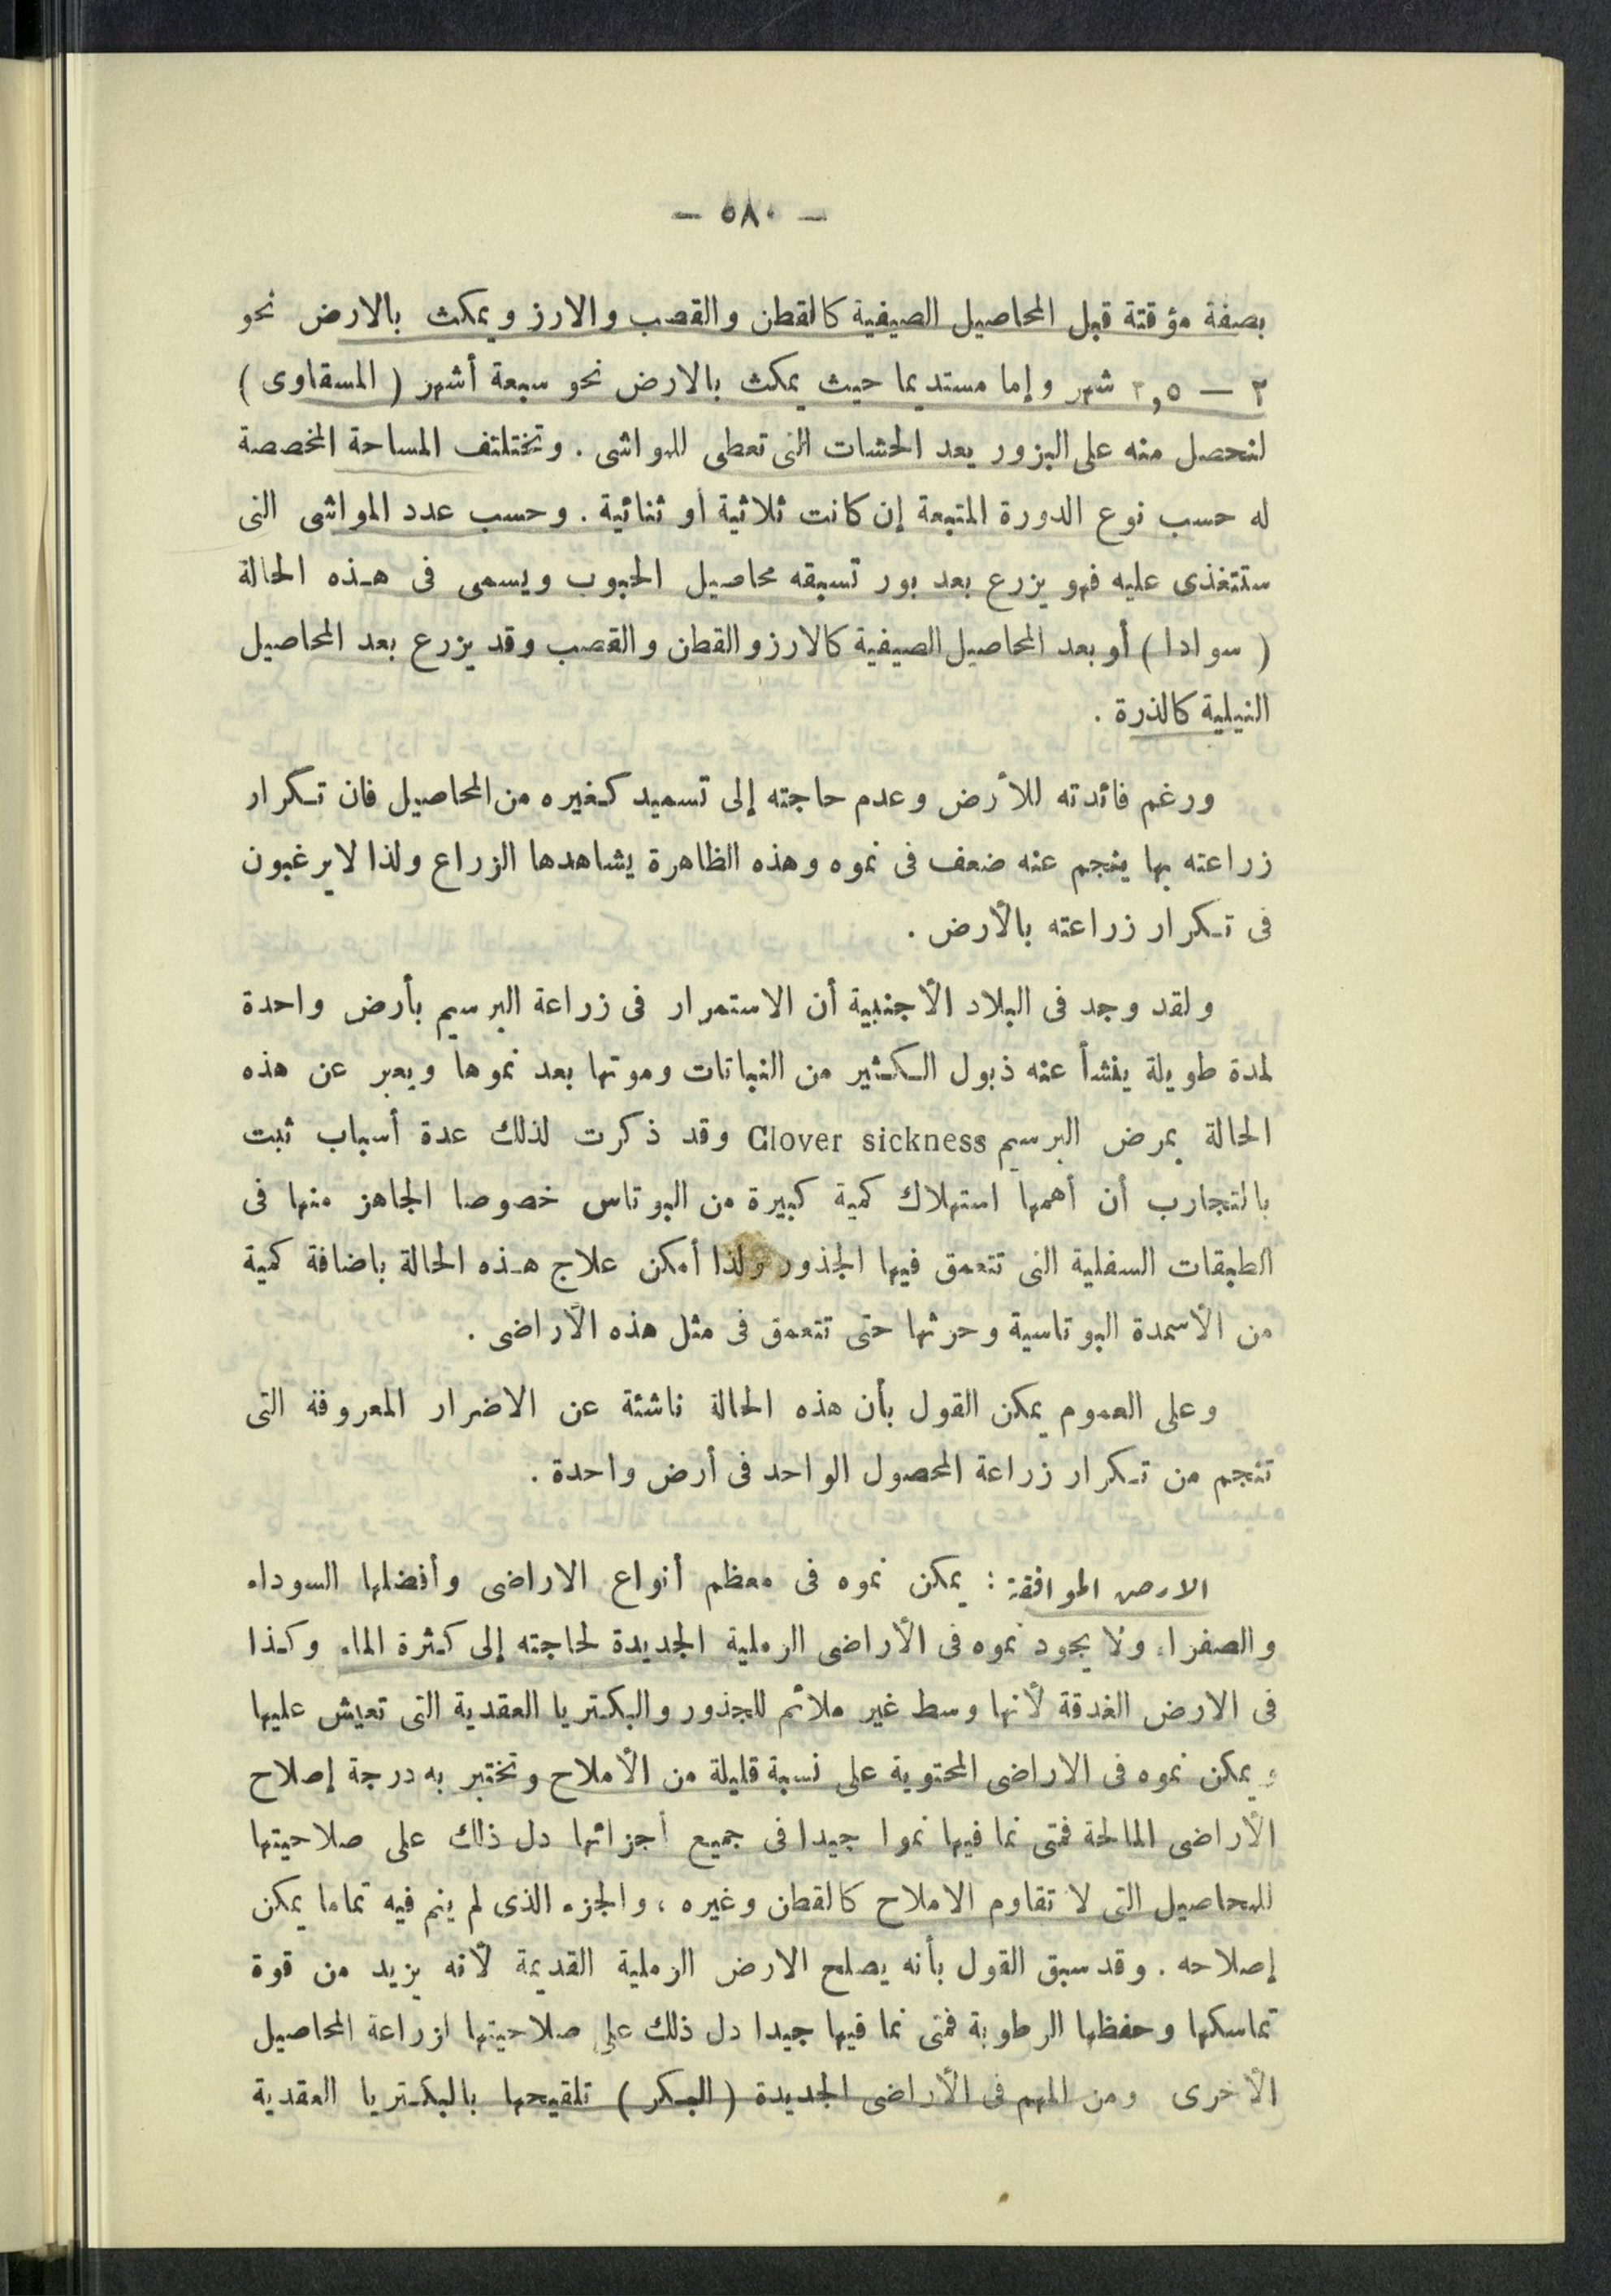 — ٥٨٠ —
بصفة مؤقتة قبل المحاصيل الصيفية كالقطن والقصب والارز ويمكث بالارض نحو
٢ — ٢,٥ شهر وإما مستديما حيث يمكث بالارض نحو سبعة أشهر ( المسقاوى )
لنحصل منه على البزور بعد الحشات التى تعطى للمواشى . وتختلتف المساحة المخصصة
له حسب نوع الدورة المتبعة إن كانت ثلاثية أو ثنائية . وحسب عدد المواشى التى
ستتغذى عليه فهو يزرع بعد بور تسبقه محاصيل الحبوب ويسمى فى هذه الحالة
( سوادا ) أو بعد المحاصيل الصيفية كالارز والقطن والقصب وقد يزرع بعد المحاصيل
النيلية كالذرة .
ورغم فائدته للأرض وعدم حاجته إلى تسميد كغيره من المحاصيل فان تكرار
زراعته بها ينجم عنه ضعف فى نموه وهذه الظاهرة يشاهدها الزراع ولذا لا يرغبون
فى تكرار زراعته بالأرض .
ولقد وجد فى البلاد الأجنبية أن الاستمرار فى زراعة البرسيم بأرض واحدة
لمدة طويلة ينشأ عنه ذبول الكثير من النباتات وموتها بعد نموها ويعبر عن هذه
الحالة بمرض البرسيم Clover sickness وقد ذكرت لذلك عدة أسباب ثبت
بالتجارب أن أهمها استهلاك كمية كبيرة من البوتاس خصوصا الجاهز منها فى
الطبقات السفلية التى تتعمق فيها الجذور ولذا أمكن علاج هذه الحالة باضافة كمية
من الأسمدة البوتاسية وحرثها حتى تتعمق فى مثل هذه الأراضى .
وعلى العموم يمكن القول بأن هذه الحالة ناشئة عن الاضرار المعروفة التى
تنجم من تكرار زراعة المحصول الواحد فى أرض واحدة .
الارض الموافقة : يمكن نموه فى معظم أنواع الاراضى وأفضلها السوداء
والصفراء ولا يجود نموه فى الأراضى الرملية الجديدة لحاجته إلى كثرة الماء وكذا
فى الارض الغدقة لأنها وسط غير ملائم للجذور والبكتريا العقدية التى تعيش عليها
ويمكن نموه فى الاراضى المحتوية على نسبة قليلة من الأملاح وتختبر به درجة إصلاح
الأراضى المالحة فمتى نما فيها نموا جيدا فى جميع أجزائها دل ذلك على صلاحيتها
للمحاصيل التى لا تقاوم الاملاح كالقطن وغيره ، والجزء الذى لم ينم فيه تماما يمكن
إصلاحه . وقد سبق القول بأنه يصلح الارض الرملية القديمة لأنه يزيد من قوة
تماسكها وحفظها الرطوبة فمتى نما فيها جيدا دل ذلك على صلاحيتها لزراعة المحاصيل
الأخرى ومن المهم فى الأراضى الجديدة ( البكر ) تلقيحها بالبكتريا العقدية